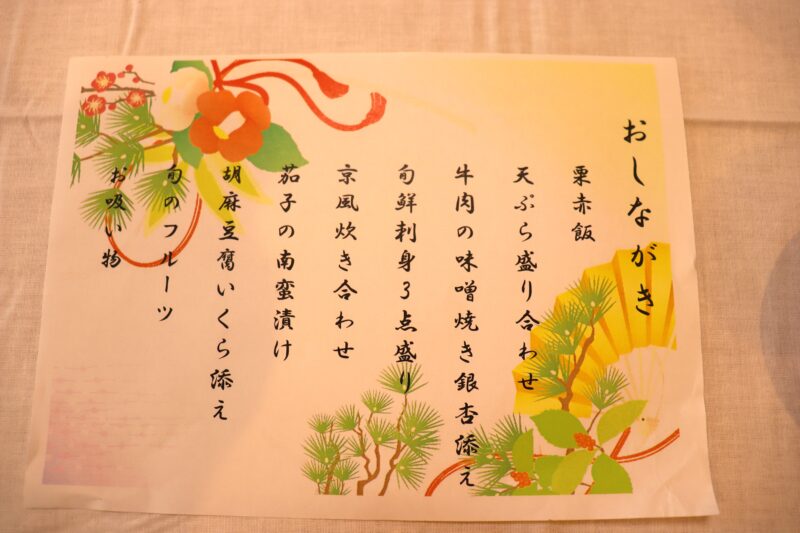 おしながき
栗赤飯
天ぷら盛り合わせ
牛肉の味噌焼き銀杏添え
旬鮮刺身3点盛り
京風炊き合わせ
茄子の南蛮漬け
胡麻豆腐いくら添え
旬のフルーツ
お吸い物